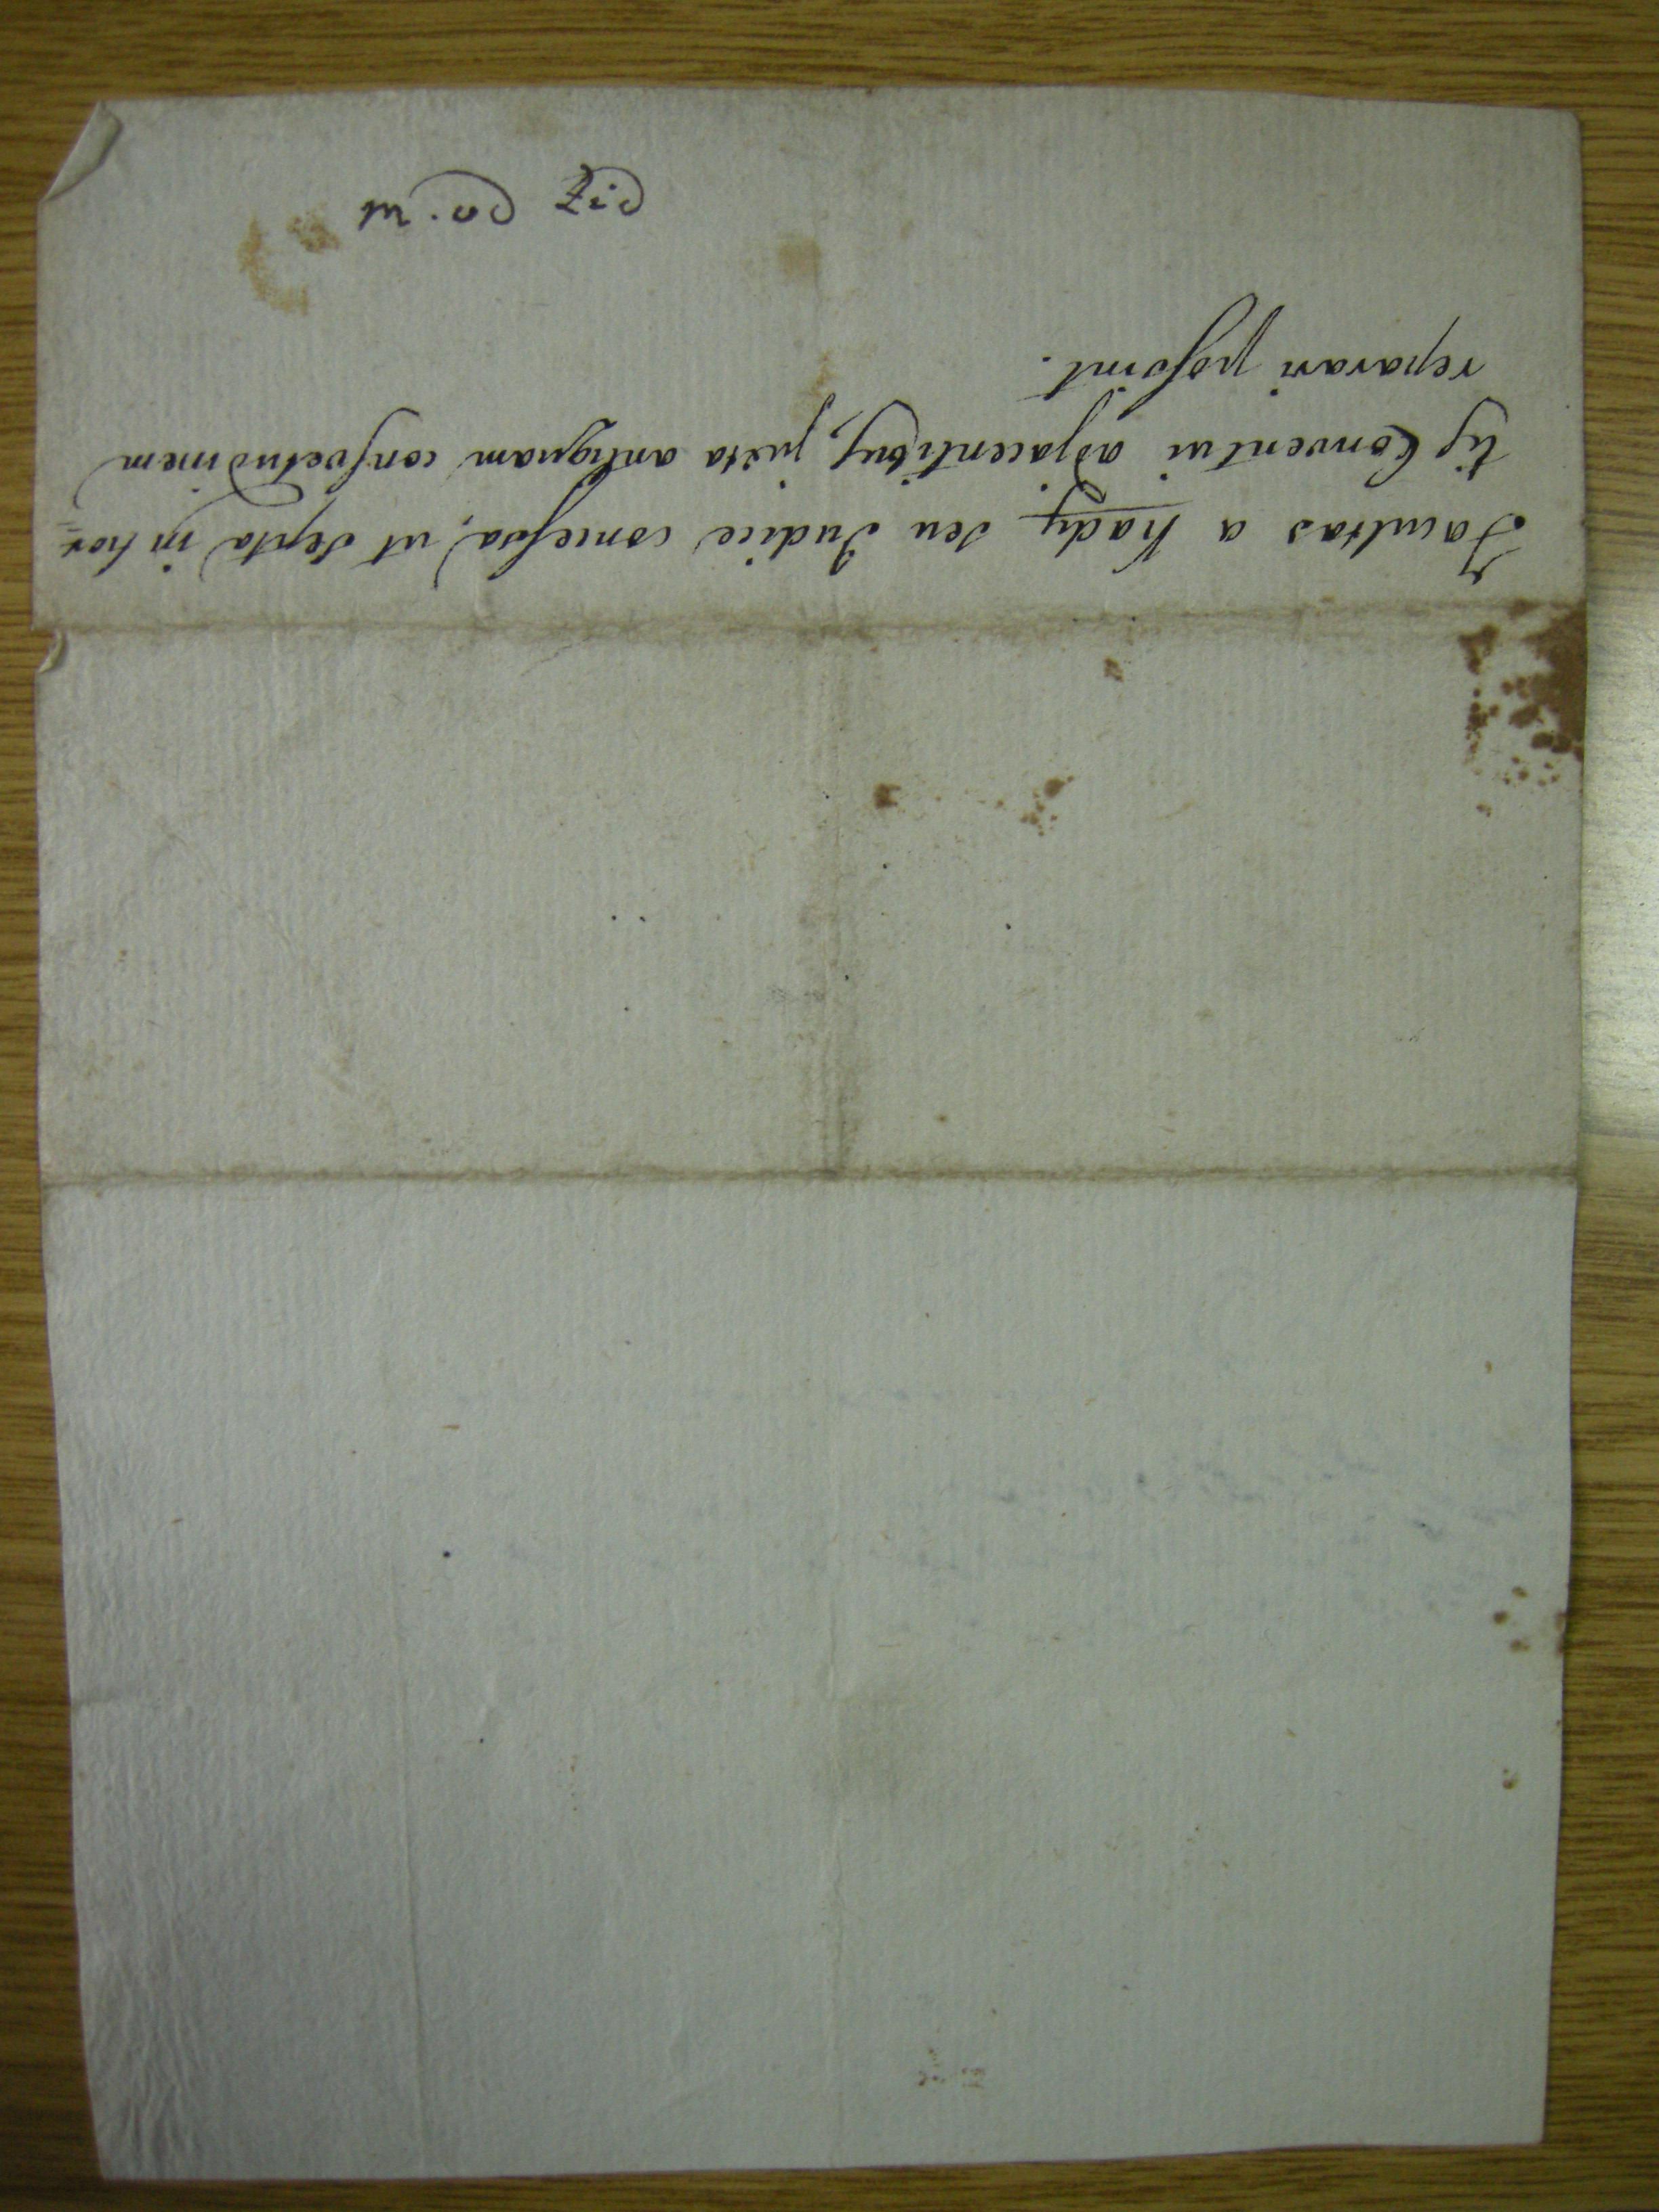 Facultas a Kady seu Judice concessa, ut septa in hor=
tis Conventui adjacentibus, juxta antiquam consvetudinem
reparari possint.
m. od Zid